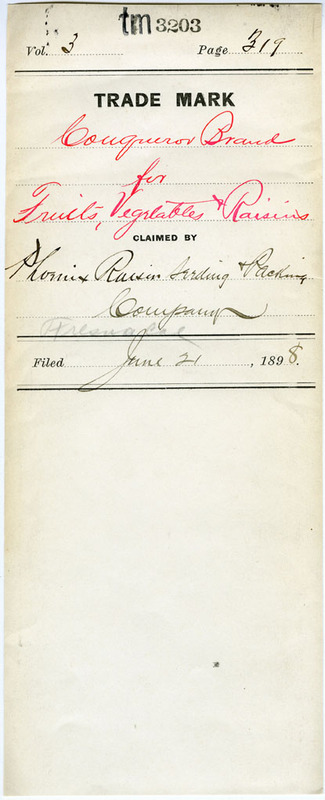 tm 3203
Vol. 3 Page 319
TRADE MARK
Conqueror Brand
for
Fruits, Vegetables & Raisins
CLAIMED BY
Phoenix Raisin Seeding & Packing
Company
Filed June 21, 1898.